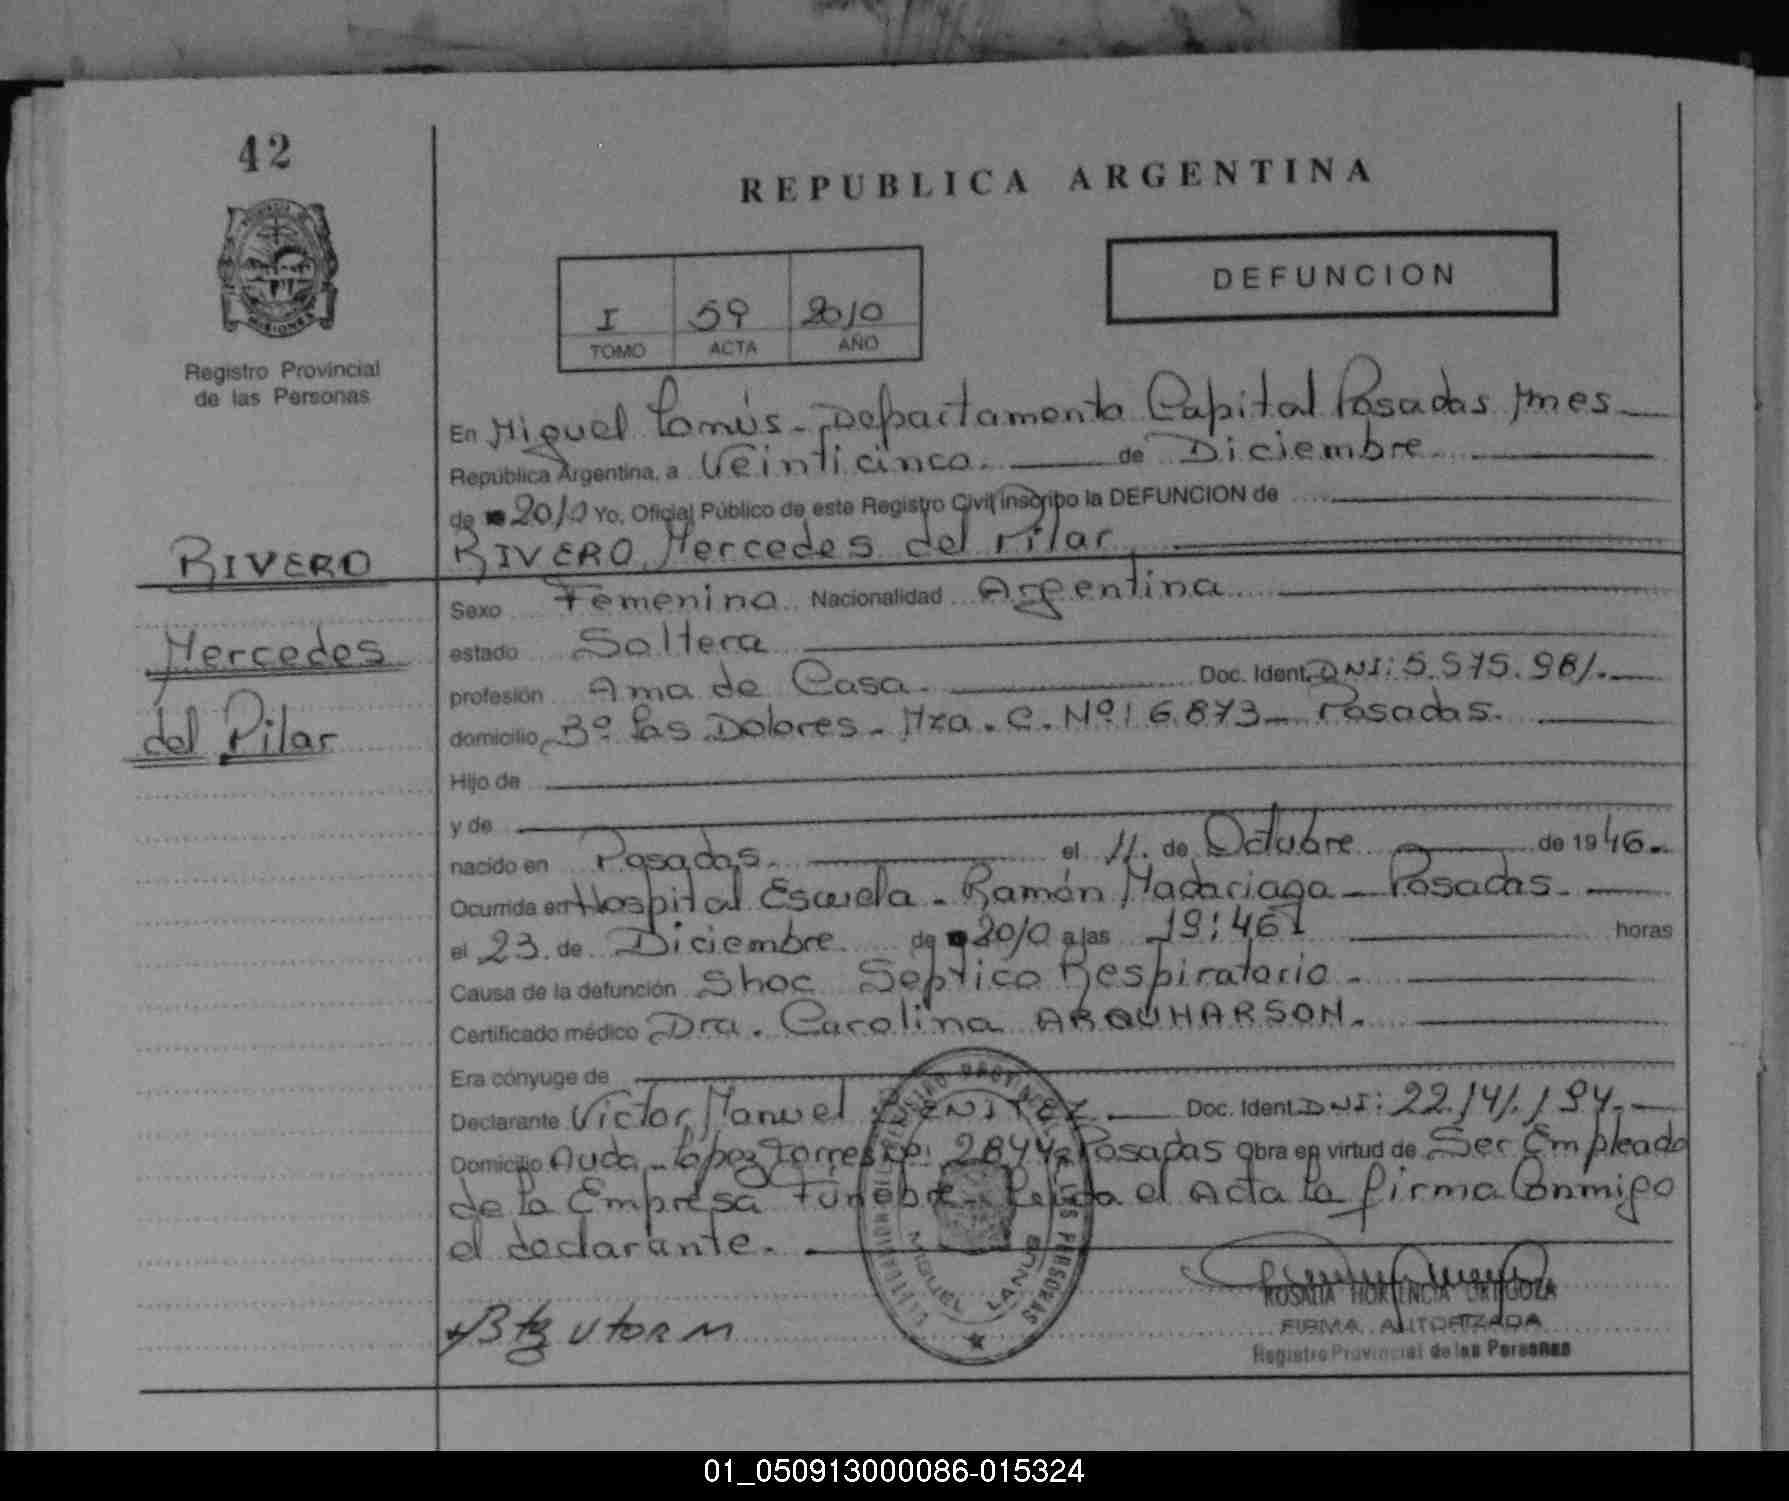 42
REPUBLICA ARGENTINA
DEFUNCION
I 59 2010
TOMO ACTA AÑO
MISIONES
Registro Provincial
de las Personas
En Miguel Lanús - Departamento Capital Posadas Mnes
República Argentina, a Veinticinco. de Diciembre
de 2010 Yo, Oficial Público de este Registro Civil inscribo la DEFUNCION de
RIVERO Mercedes del Pilar
RIVERO
Mercedes
del Pilar
Sexo Femenino Nacionalidad Argentina
estado Soltera
profesión Ama de Casa. Doc. Ident. DNI: 5.575.981.
domicilio Bº Las Dolores - Mza. C. Nº: 6873 - Posadas.
Hijo de
y de
nacido en Posadas. el 11. de Octubre de 1946.
Ocurrida en Hospital Escuela - Ramón Madariaga - Posadas.
el 23. de Diciembre de 2010 a las 19:46 horas
Causa de la defunción Shoc Septico Respiratorio.
Certificado médico Dra. Carolina ARQUHARSON.
Era cónyuge de
Declarante Victor Manuel BENITEZ Doc. Ident. DNI: 22.141.194.
Domicilio Avda. López Torres Nº: 2844 - Posadas Obra en virtud de Ser Empleado
de la Empresa Fúnebre. Leída el Acta la firma Conmigo
el declarante.
ROSALIA HORTENCIA URIGOZA
FIRMA AUTORIZADA
Registro Provincial de las Personas
MIGUEL LANUS
01_050913000086-015324